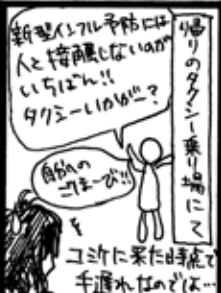 帰りのタクシー乗り場にて
新型インフル予防には
人と接触しないのが
いちばん!!
タクシーいかがー?
自分への
ごほーび!!
コミケに来た時点で
手遅れなのでは…